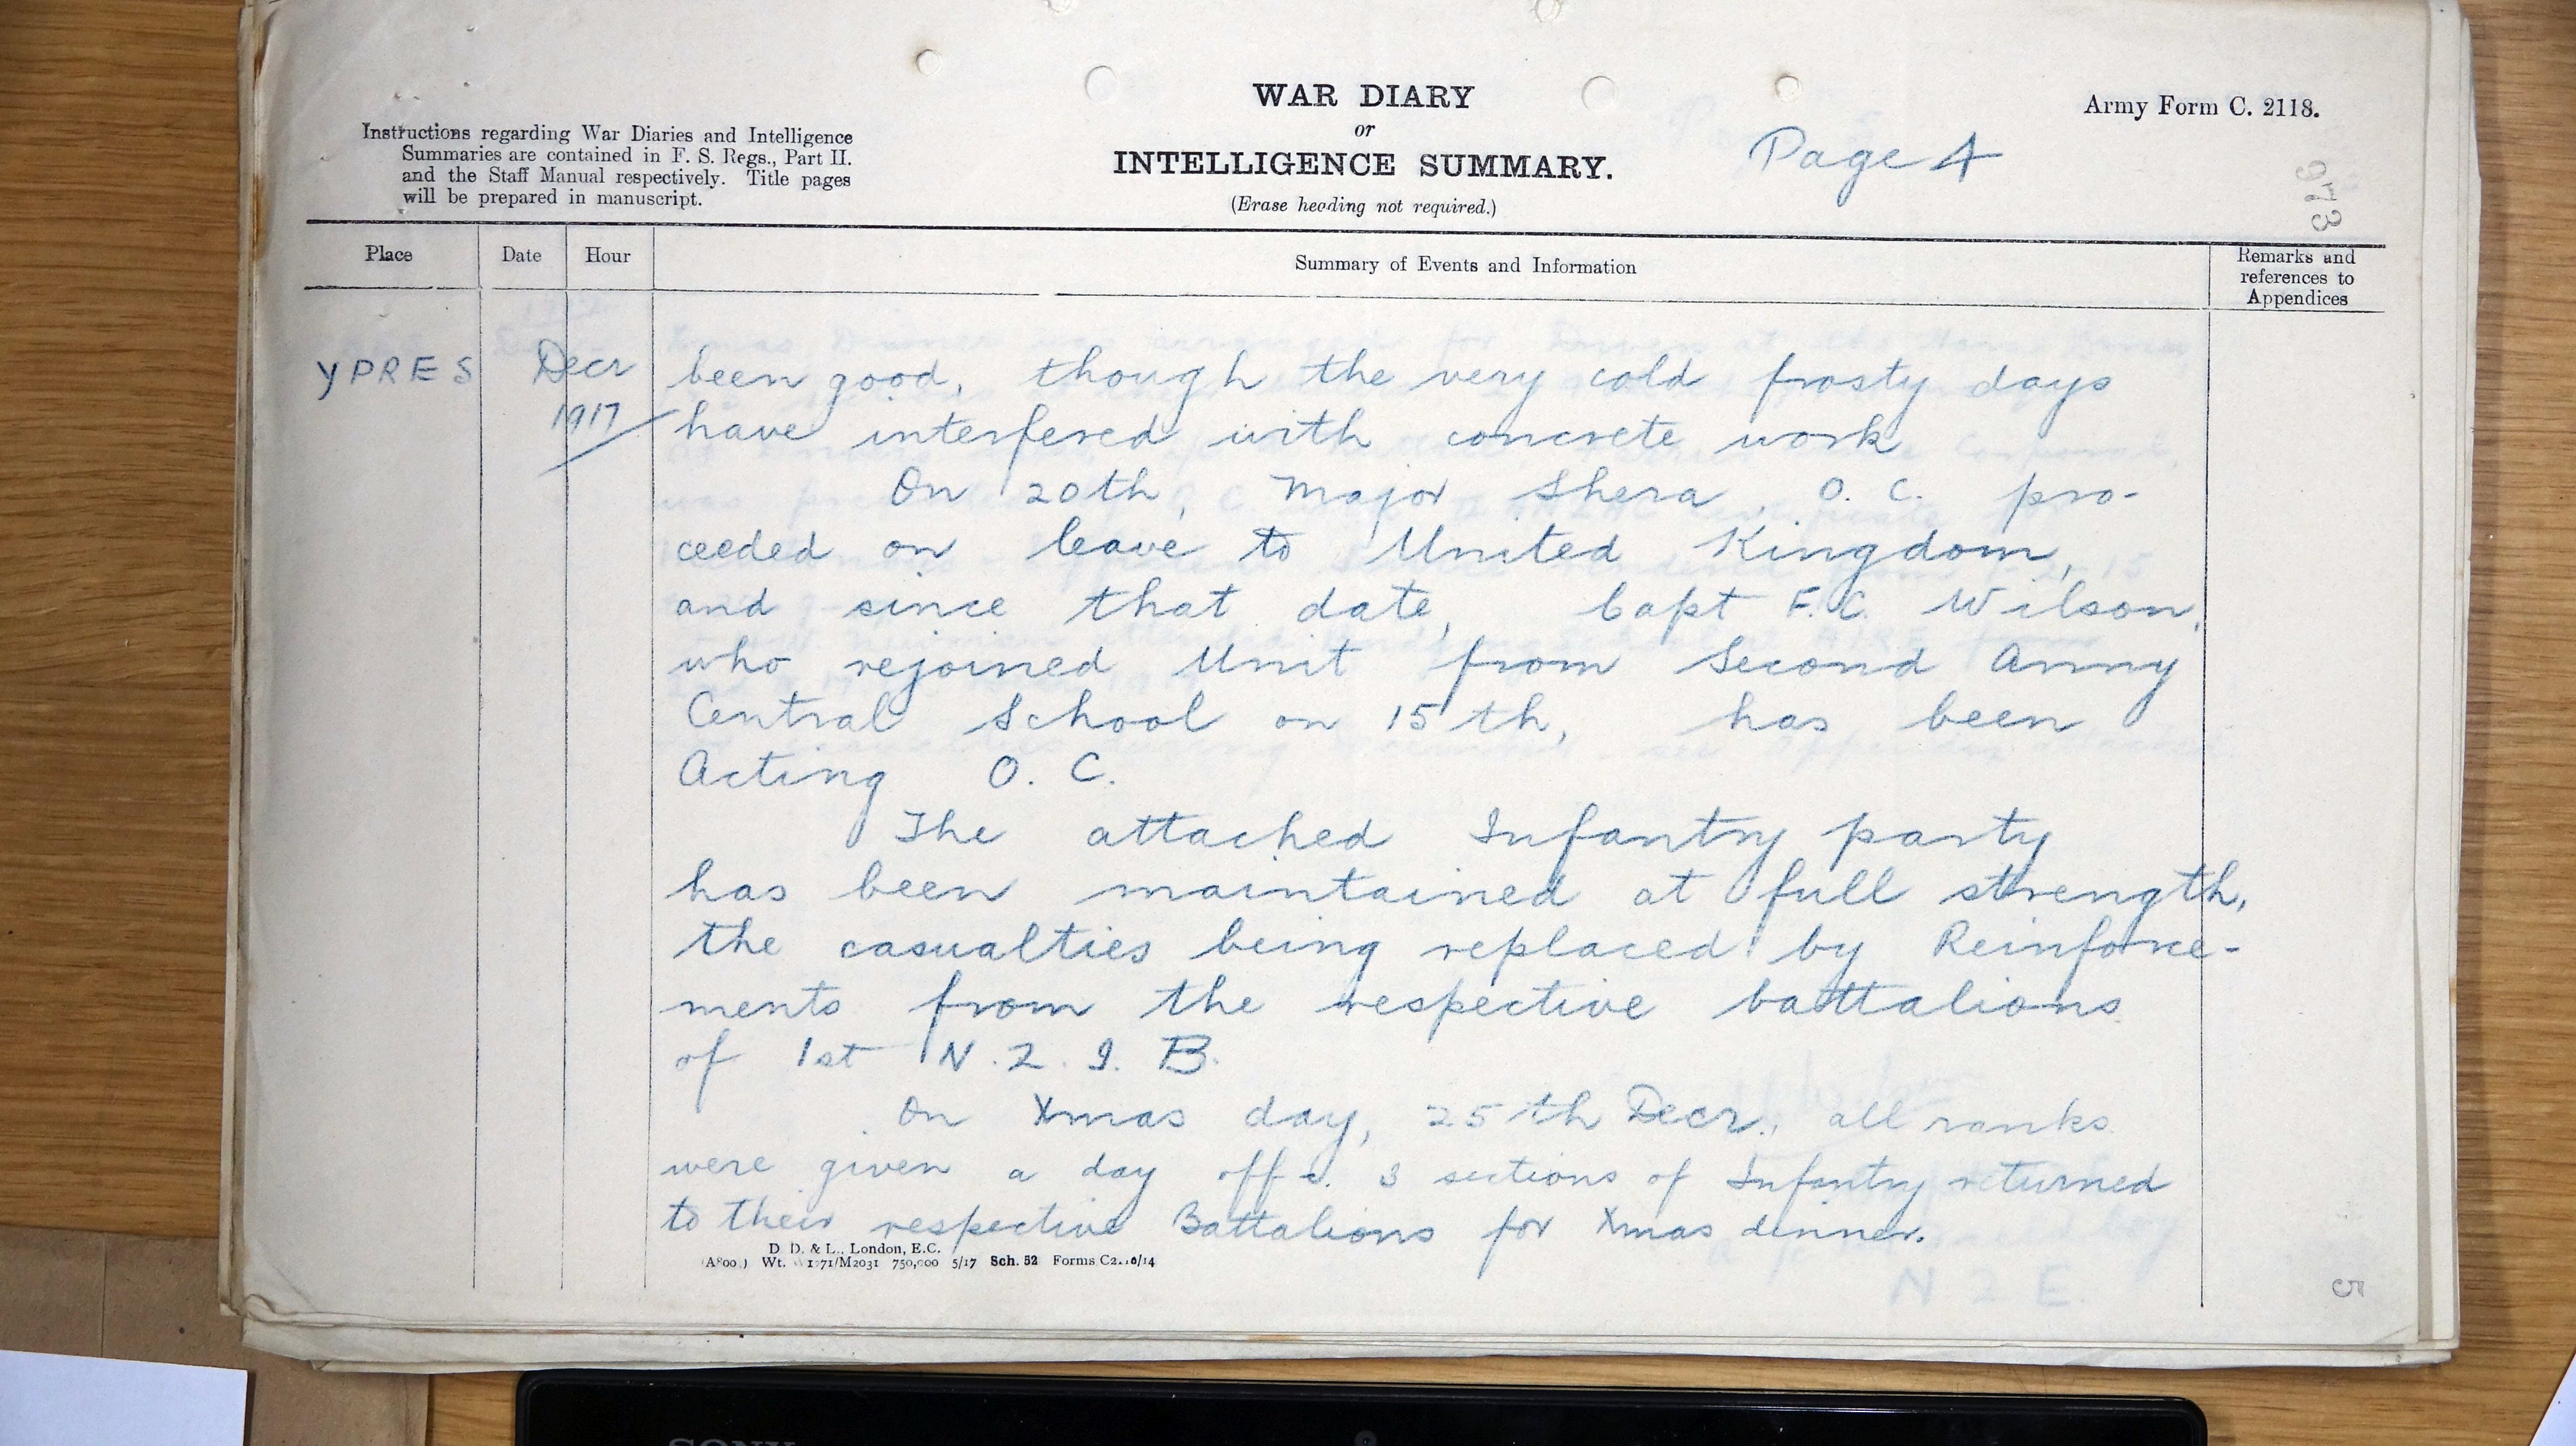 WAR DIARY
or
INTELLIGENCE SUMMARY.
(Erase heading not required.)
Page 4
Army Form C. 2118.
973
Instructions regarding War Diaries and Intelligence
Summaries are contained in F. S. Regs., Part II.
and the Staff Manual respectively. Title pages
will be prepared in manuscript.
Place Date Hour Summary of Events and Information Remarks and
references to
Appendices
YPRES Decr been good, though the very cold frosty days
1917 have interfered with concrete work
On 20th, Major Shera, O. C. pro-
ceeded on leave to United Kingdom,
and since that date, Capt F.C. Wilson,
who rejoined Unit from Second Army
Central School on 15th, has been
Acting O. C.
The attached Infantry party
has been maintained at full strength,
the casualties being replaced by Reinforce-
ments from the respective battalions
of 1st N.Z.I.B.
On Xmas day, 25th Decr., all ranks
were given a day off &. 3 sections of Infantry returned
to their respective Battalions for Xmas dinner.
D. D. & L., London, E.C.
750,000 5/17 Sch. 52
5
N Z E
SONY